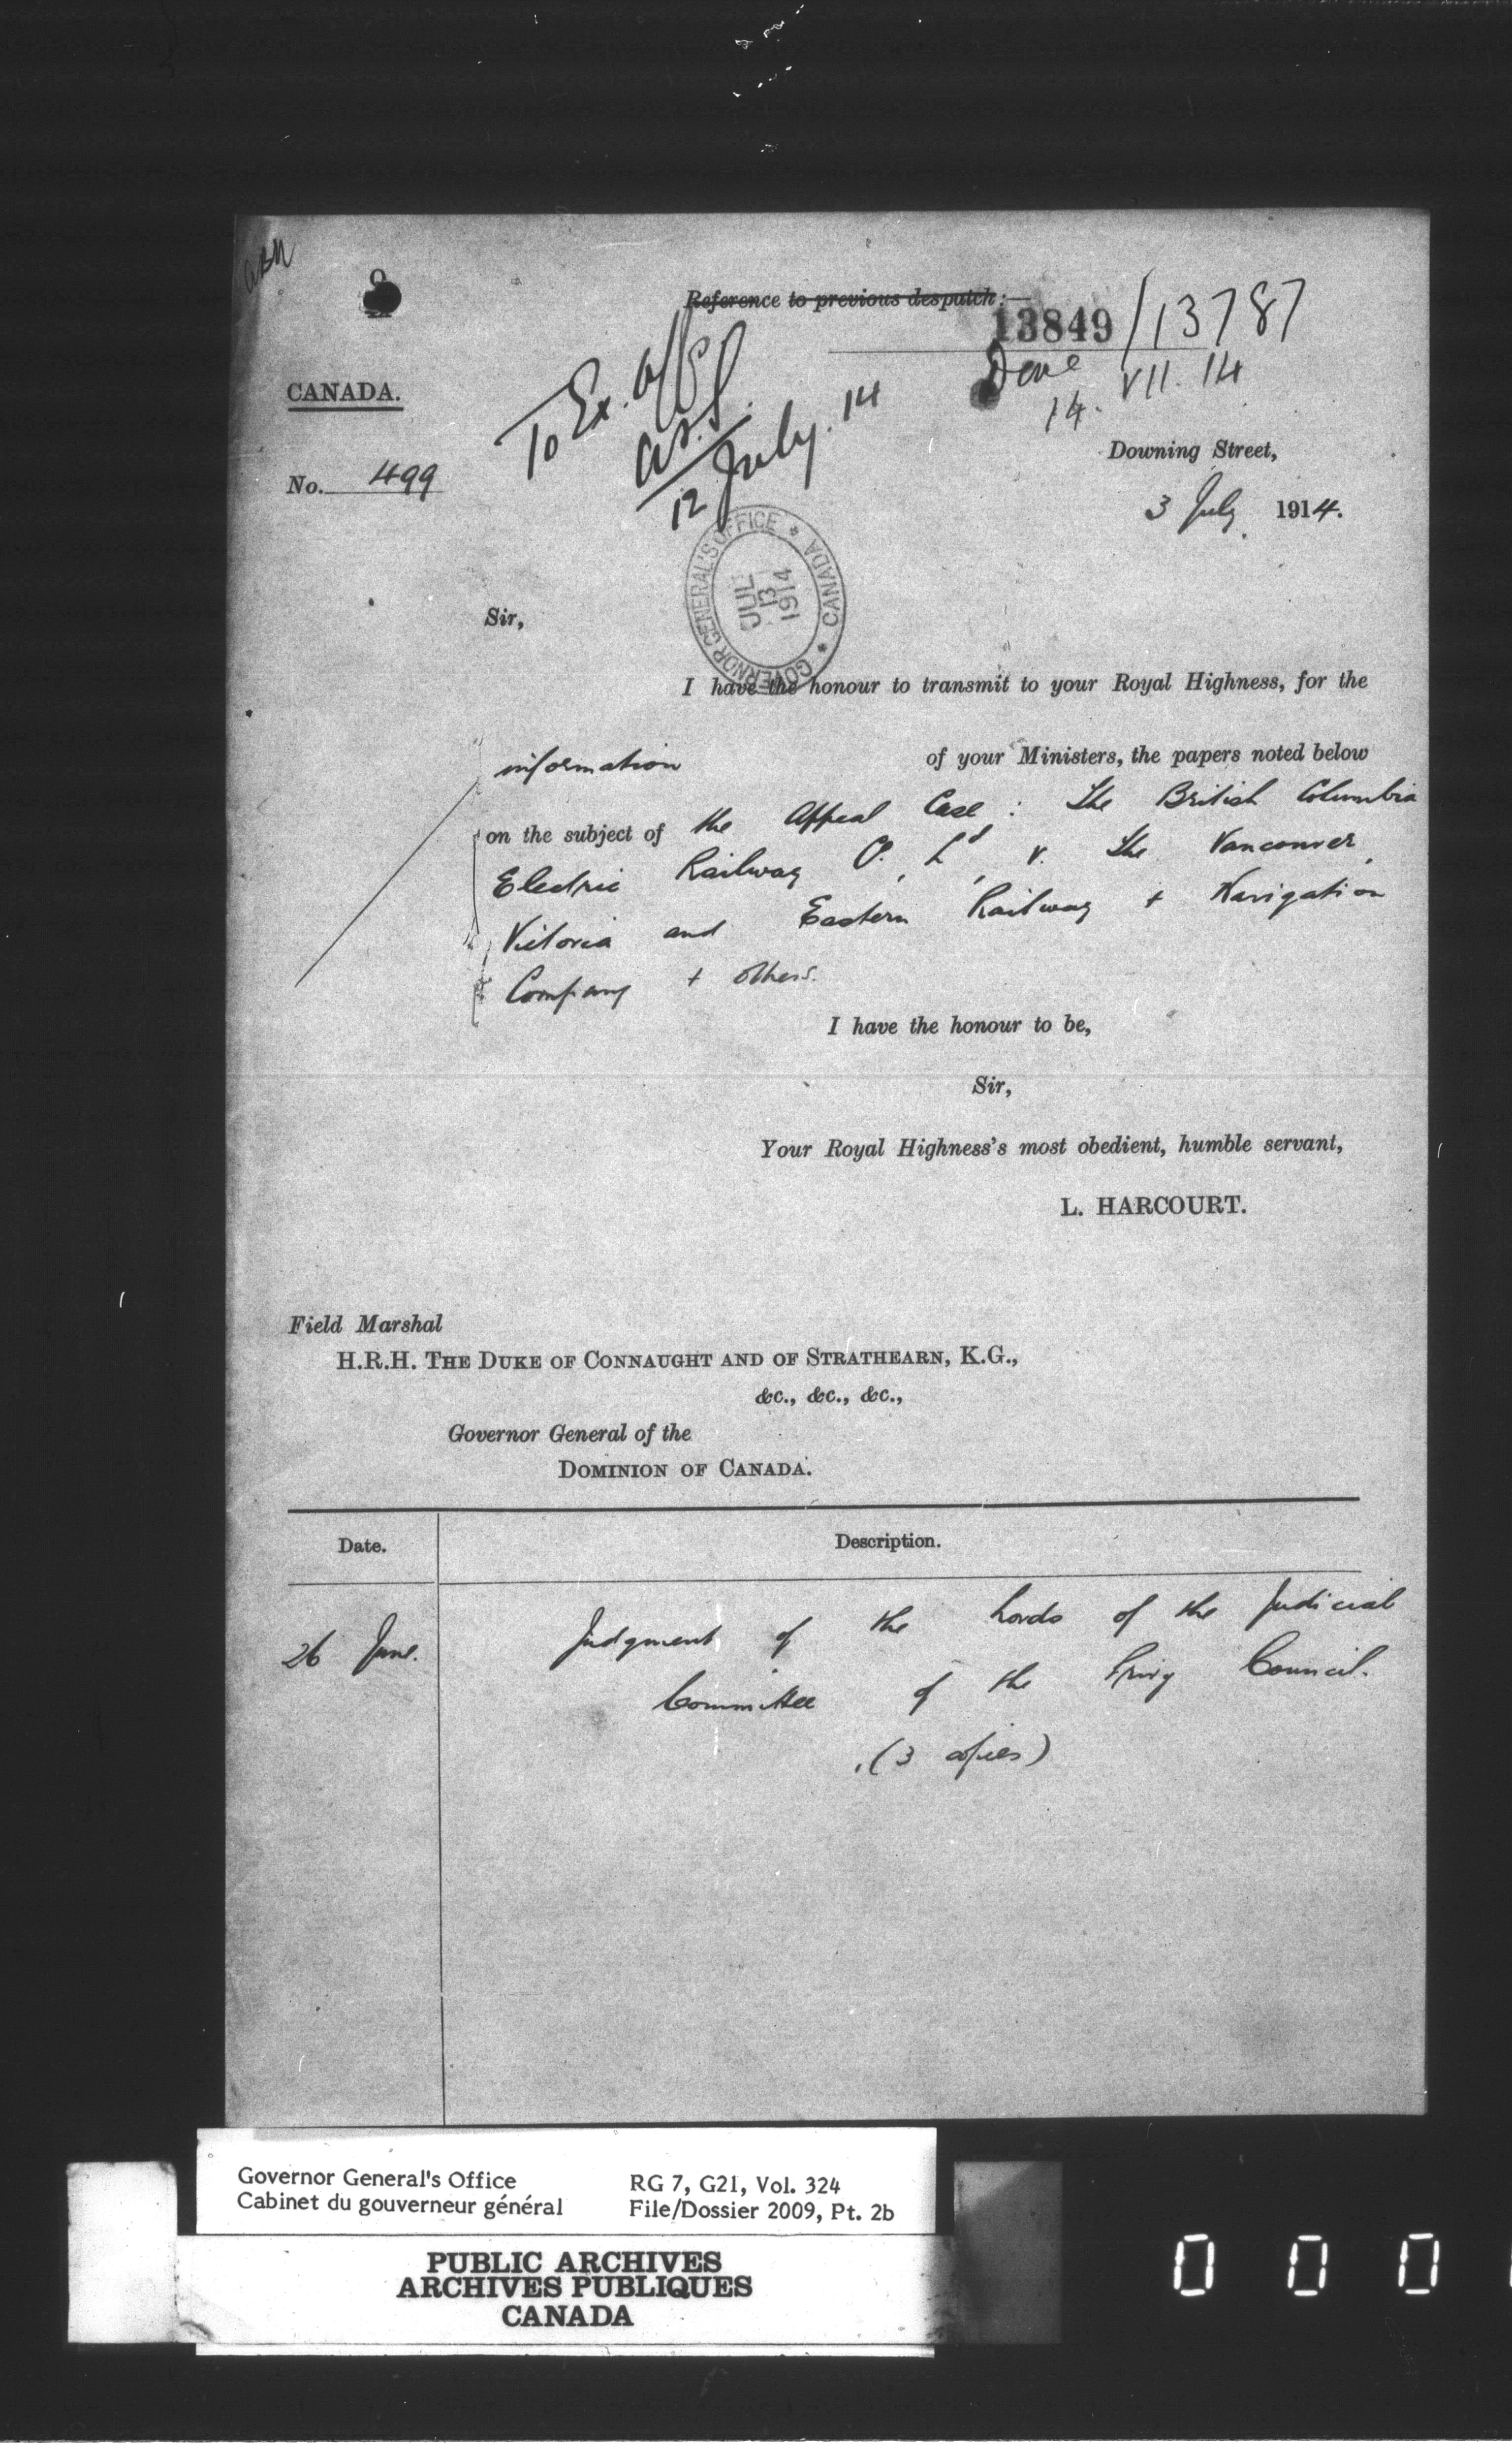 Reference to previous despatch :—
13849 / 13787
Done
14. VII. 14
CANADA.
To Ex. Off
12 July. 14
No. 499
Downing Street,
3 July 1914.
GOVERNOR GENERAL'S OFFICE * CANADA *
JUL 13 1914
Sir,
I have the honour to transmit to your Royal Highness, for the
information of your Ministers, the papers noted below
on the subject of the Appeal Case : The British Columbia
Electric Railway Co., Ld, v. The Vancouver,
Victoria and Eastern Railway + Navigation
Company + others.
I have the honour to be,
Sir,
Your Royal Highness's most obedient, humble servant,
L. HARCOURT.
Field Marshal
H.R.H. THE DUKE OF CONNAUGHT AND OF STRATHEARN, K.G.,
&c., &c., &c.,
Governor General of the
DOMINION OF CANADA.
Date. Description.
26 June. Judgment of the Lords of the Judicial
Committee of the Privy Council.
(3 copies)
Governor General's Office RG 7, G21, Vol. 324
Cabinet du gouverneur général File/Dossier 2009, Pt. 2b
PUBLIC ARCHIVES
ARCHIVES PUBLIQUES
CANADA
0 0 0